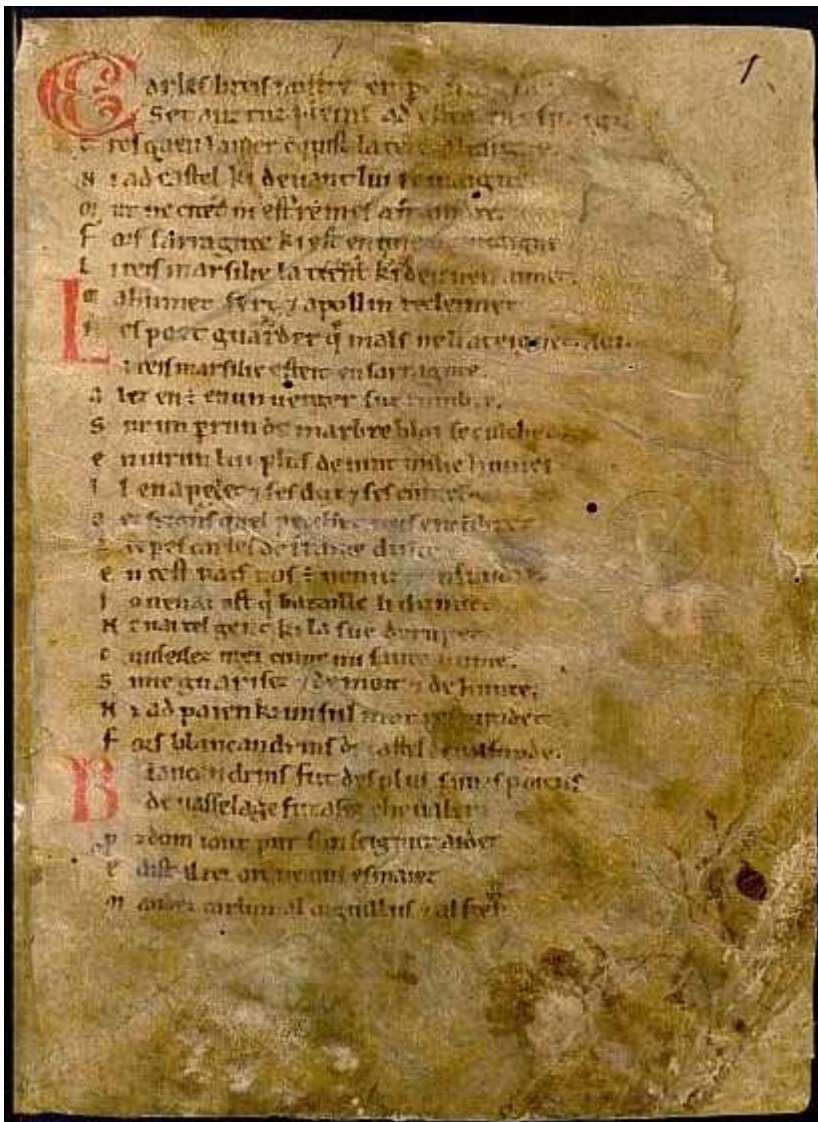 Carles li reis nostre emp
Set anz tuz pleins ad estet en espaigne
tresquen la mer cūquist la tere altaigne
N i ad castel ki devant lui remaigne
M ur ne citet ni est remes a fraindre
F ors sarraguce ki est en une muntaigne
L i reis marsilie la tient ki deu nen aimet
M ahumet sert ⁊ apollin recleimet
N es poet guarder q̄ mals ne li ateignet aoi
Li reis marsilie esteit en sarraguce.
A lez en ē en un verger suz lumbre.
S ur un p̄run de marbre bloi se culchet
E nvirun lui plus de vint milie humes
I l en apelet ⁊ ses dux ⁊ ses cuntes
o ez seign̄s quel pecchet nus encūbret
carles de france dulce
E n cest pais nos ē venuz cunfundre
J o nen ai ost q̄ bataille li dunne
N en ai tel gent ki la sue derumpet
C unseilez mei cume mi saive hume.
S i me guarisez ⁊ de mort ⁊ de hunte.
N i ad paien ki un sul mot respundet
F ors blancandrins de castel de valfunde.
Blancandrins fut des plus saives paiens
de vasselage fut asez chevaler
P rozdom i out pur sun seignur aider
E dist al rei or ne vus esmaiez
M andez carlun al orguillus ⁊ al fier
1